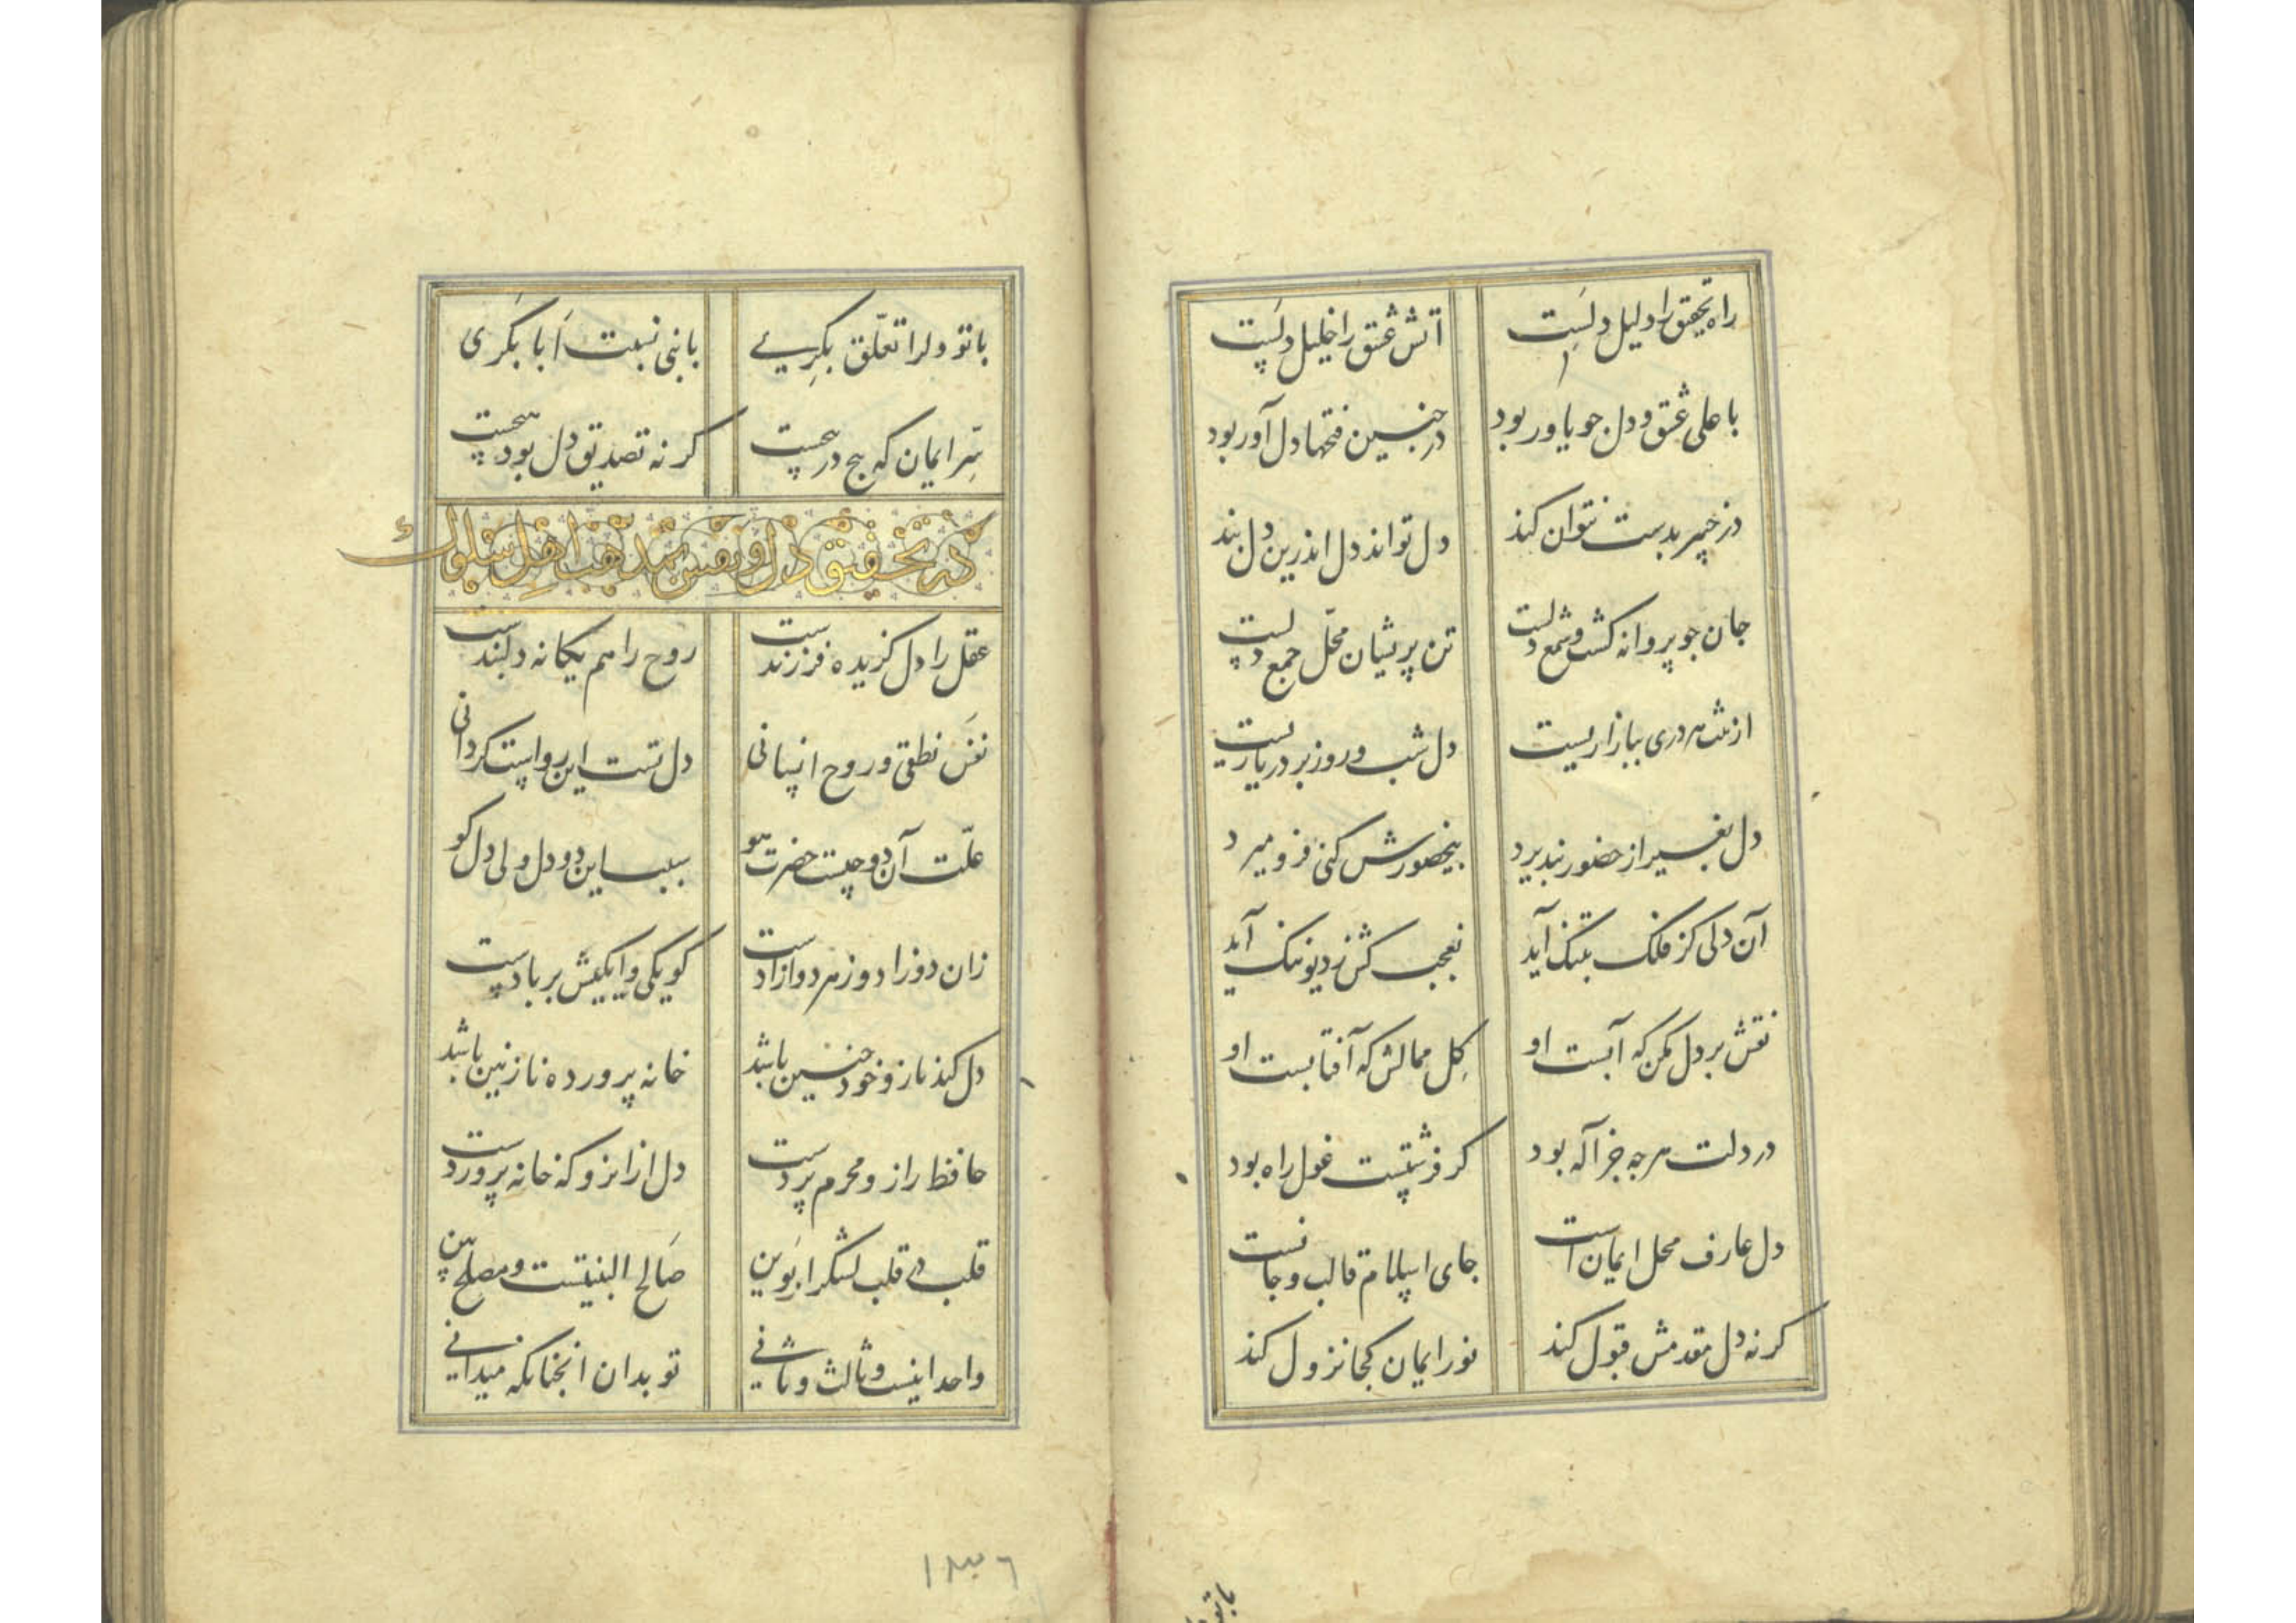 راه تحقیق را دلیل دلست آتش عشق را خلیل دلست
با علی عشق و دل چو یاور بود در چنین فتحها دل آور بود
در خیبر بدست نتوان کند دل تواند دل اندرین دل بند
جان چو پروانه کشت و شمع دلست تن پریشان محل جمع دلست
از تنت هر دری ببازاریست دل شب و روز بر در یاریست
دل بغیر از حضور نپذیرد بیحضورش کنی فرو میرد
آن دلی کز فلک بتنک آید نه عجب کش ز دیو ننک آید
نقش بر دل مکن که آبست او کل ممالش که آفتابست او
در دلت هرچه جز اله بود کر فرشتست غول راه بود
دل عارف محل ایمان است جای اسلام قالب و جانست
کر نه دل مقدمش قبول کند نور ایمان کجا نزول کند
با تو دلرا تعلق بکری با نبی نسبت ابا بکری
سر ایمان که هیچ در نحست کر نه تصدیق دل بود سحست
در تحقیق دل و نفس بمذهب اهل سلوک
عقل را دل کزیده فرزندست روح را هم یکانه دلبندست
نفس نطقی و روح انسانی دل تست این رواست کر دانی
علت آن دو چیست حضرت هو سبب این دو دل ولی دل کو
زان دو زاد و ز هر دو آزادست کو یکی و ایکیش بر بادست
دل کند ناز و خود چنین باشد خانه پرورده نازنین باشد
حافظ راز و محرم پردست دل از انرو که خانه پروردست
قلب دی قلب لشکر ابوین صالح البنیتست و مصلح بین
واحد اینست و ثالث و ثانی تو بدان انچنانکه میدانی
۱۳۶